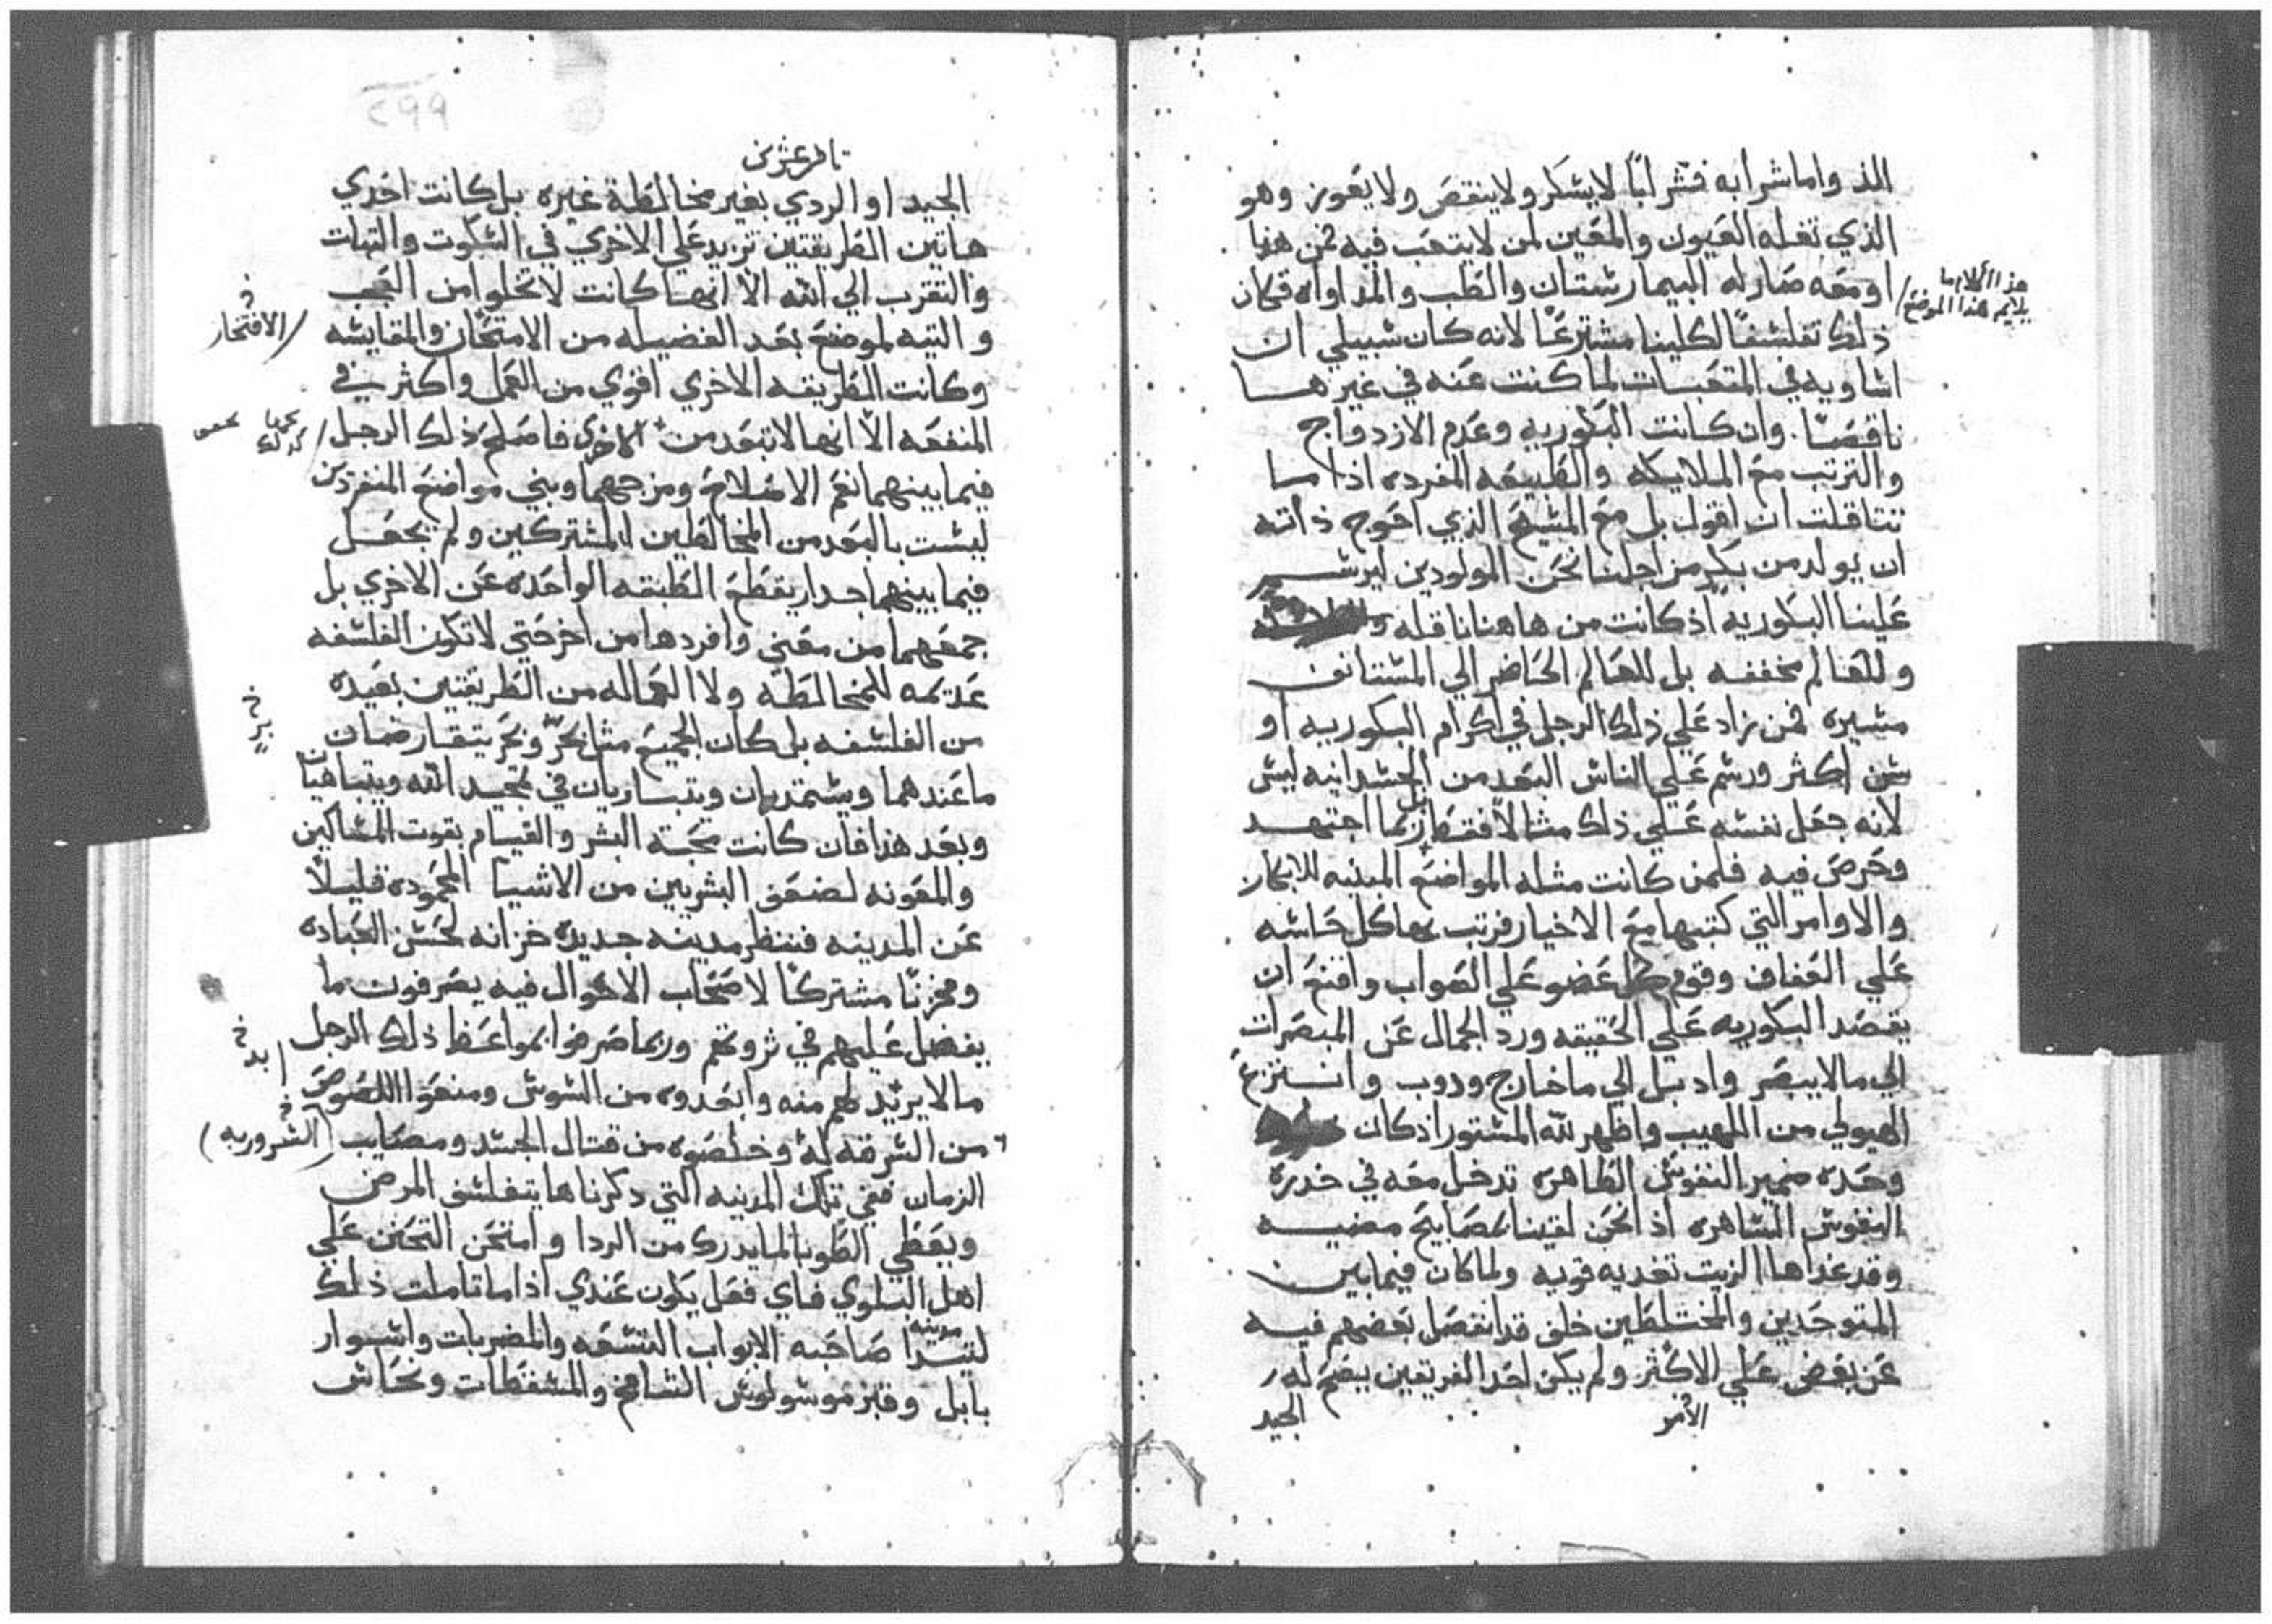 الذ واما شرابه فشرابًا لا يسكر ولا ينقص ولا يعوز وهو
الذي تغله العيون والمعين لمن لا يتعب فيه فمن هنا
او معه صار له البيمارستان والطب والمداواه فكان
هذا الكلام ما
يلايم هذا الموضع
ذلك تفلسفًا لكلينا مشترعًا لانه كان سبيلي ان
اساويه في المتعبات لما كنت عنه في غيرها
ناقصًا. وان كانت البكوريه وعدم الازدواج
والترتب مع الملايكه والطبيعه المفرده اذا ما
تثاقلت ان اقول بل مع المسيح الذي احوج ذاته
ان يولد من بكر من اجلنا نحن المولودين ليرسم
علينا البكوريه اذ كانت من هاهنا ناقله
وللعالم مخففه بل للعالم الحاضر الي المستانف
مسيره فمن زاد علي ذلك الرجل في اكرام البكوريه او
سن اكثر ورسم علي الناس البعد من الجسدانيه ليس
لانه جعل نفسه علي ذلك مثالاً فقط بل بما اجتهد
وحرص فيه فلمن كانت مثله المواضع المبنيه للابكار
والاوامر التي كتبها مع الاخيار فرتب بها كل حاسه
علي العفاف وقوم كل عضو علي الصواب واقنع ان
يقصد البكوريه علي الحقيقه ورد الجمال عن المبصرات
الي ما لا يبصر واذبل الي ما خارج وذوب وانتزع
الهيولي من اللهيب واظهر لله المستور اذ كان
وحده ضمير النفوس الطاهره تدخل معه في خدره
النفوس الساهره اذا نحن لقينا بمصابيح مضيه
وقد غداها الزيت تغديه قويه ولما كان فيما بين
المتوحدين والمختلطين خلف قد انفصل بعضهم فيه
عن بعض علي الاكثر ولم يكن احد الفريقين يصح له
الامر
الجيد
٢٩٩
الجيد او الردي بغير مخالطة غيره بل كانت احدي
هاتين الطريقتين تزيد علي الاخري في السكوت والثبات
والتقرب الي الله الا انها كانت لا تخلوا من العجب
والتيه لموضع بعد الفضيله من الامتحان والمقايسه
الافتخار
وكانت الطريقه الاخري اقوي من العمل واكثر في
المنفعه الا انها لا تبعد من الاخري فاصلح ذلك الرجل
فيما بينهما نعم الاصلاح ومزجهما وبني مواضع المنفردين
ليست بالبعد من المخالطين المشتركين ولم يجعل
فيما بينهما جدار يقطع الطبقه الواحده عن الاخري بل
جمعهما من معني وافردها من اخر حتي لا تكون الفلسفه
عديمه للمخالطه ولا العماله من الطريقتين بعيده
من الفلسفه بل كان الجميع مثل بحر وبر يتقارضان
ما عندهما ويستمدان ويتباريان في تمجيد الله ويتباهيان
وبعد هذا فان كانت محبة البشر والقيام بقوت المساكين
والمعونه لضعف البشريين من الاشيا المحموده قليلاً
عن المدينه فننظر مدينه جديده خزانه لحسن العباده
ومخزنًا مشتركًا لاصحاب الاحوال فيه يصرفون ما
يفضل عليهم في ثروتهم وربما صرفوا بمواعظ ذلك الرجل
ما لا يزيد لهم منه وابعدوه من السوس ومنعوا اللصوص
من السرقه له وخلصوه من قتال الجسد ومصايب
(الشروريه)
الزمان ففي تلك المدينه التي ذكرناها يتفلسف المرض
ويعطي الطوبا لما يدرك من الردا وامتحن التحنن علي
اهل البلوي فاي فعل يكون عندي اذا ما تاملت ذلك
صاحبه الابواب التسعه والمضربات واسوار
بابل وقبر موسولوس الشامخ والمسقطات ونحاس